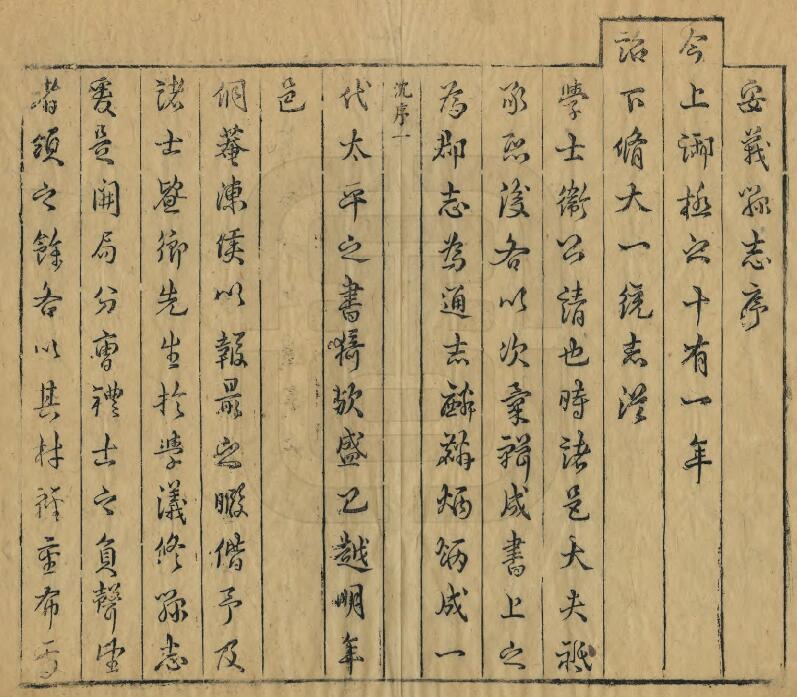 安義縣志序
今上御極之十有一年
詔下脩大一統志從
學士衞公請也時諸邑大夫祗
承恐後各以次彙輯成書上之
為郡志為通志麟麟炳炳成一
沈序一
代太平之書猗歟盛已越明年
邑
侗菴陳侯以報最之暇偕予及
諸士暨鄉先生於學議修縣志
爰是開局分曹禮士之負聲望
者領之餘各以其材